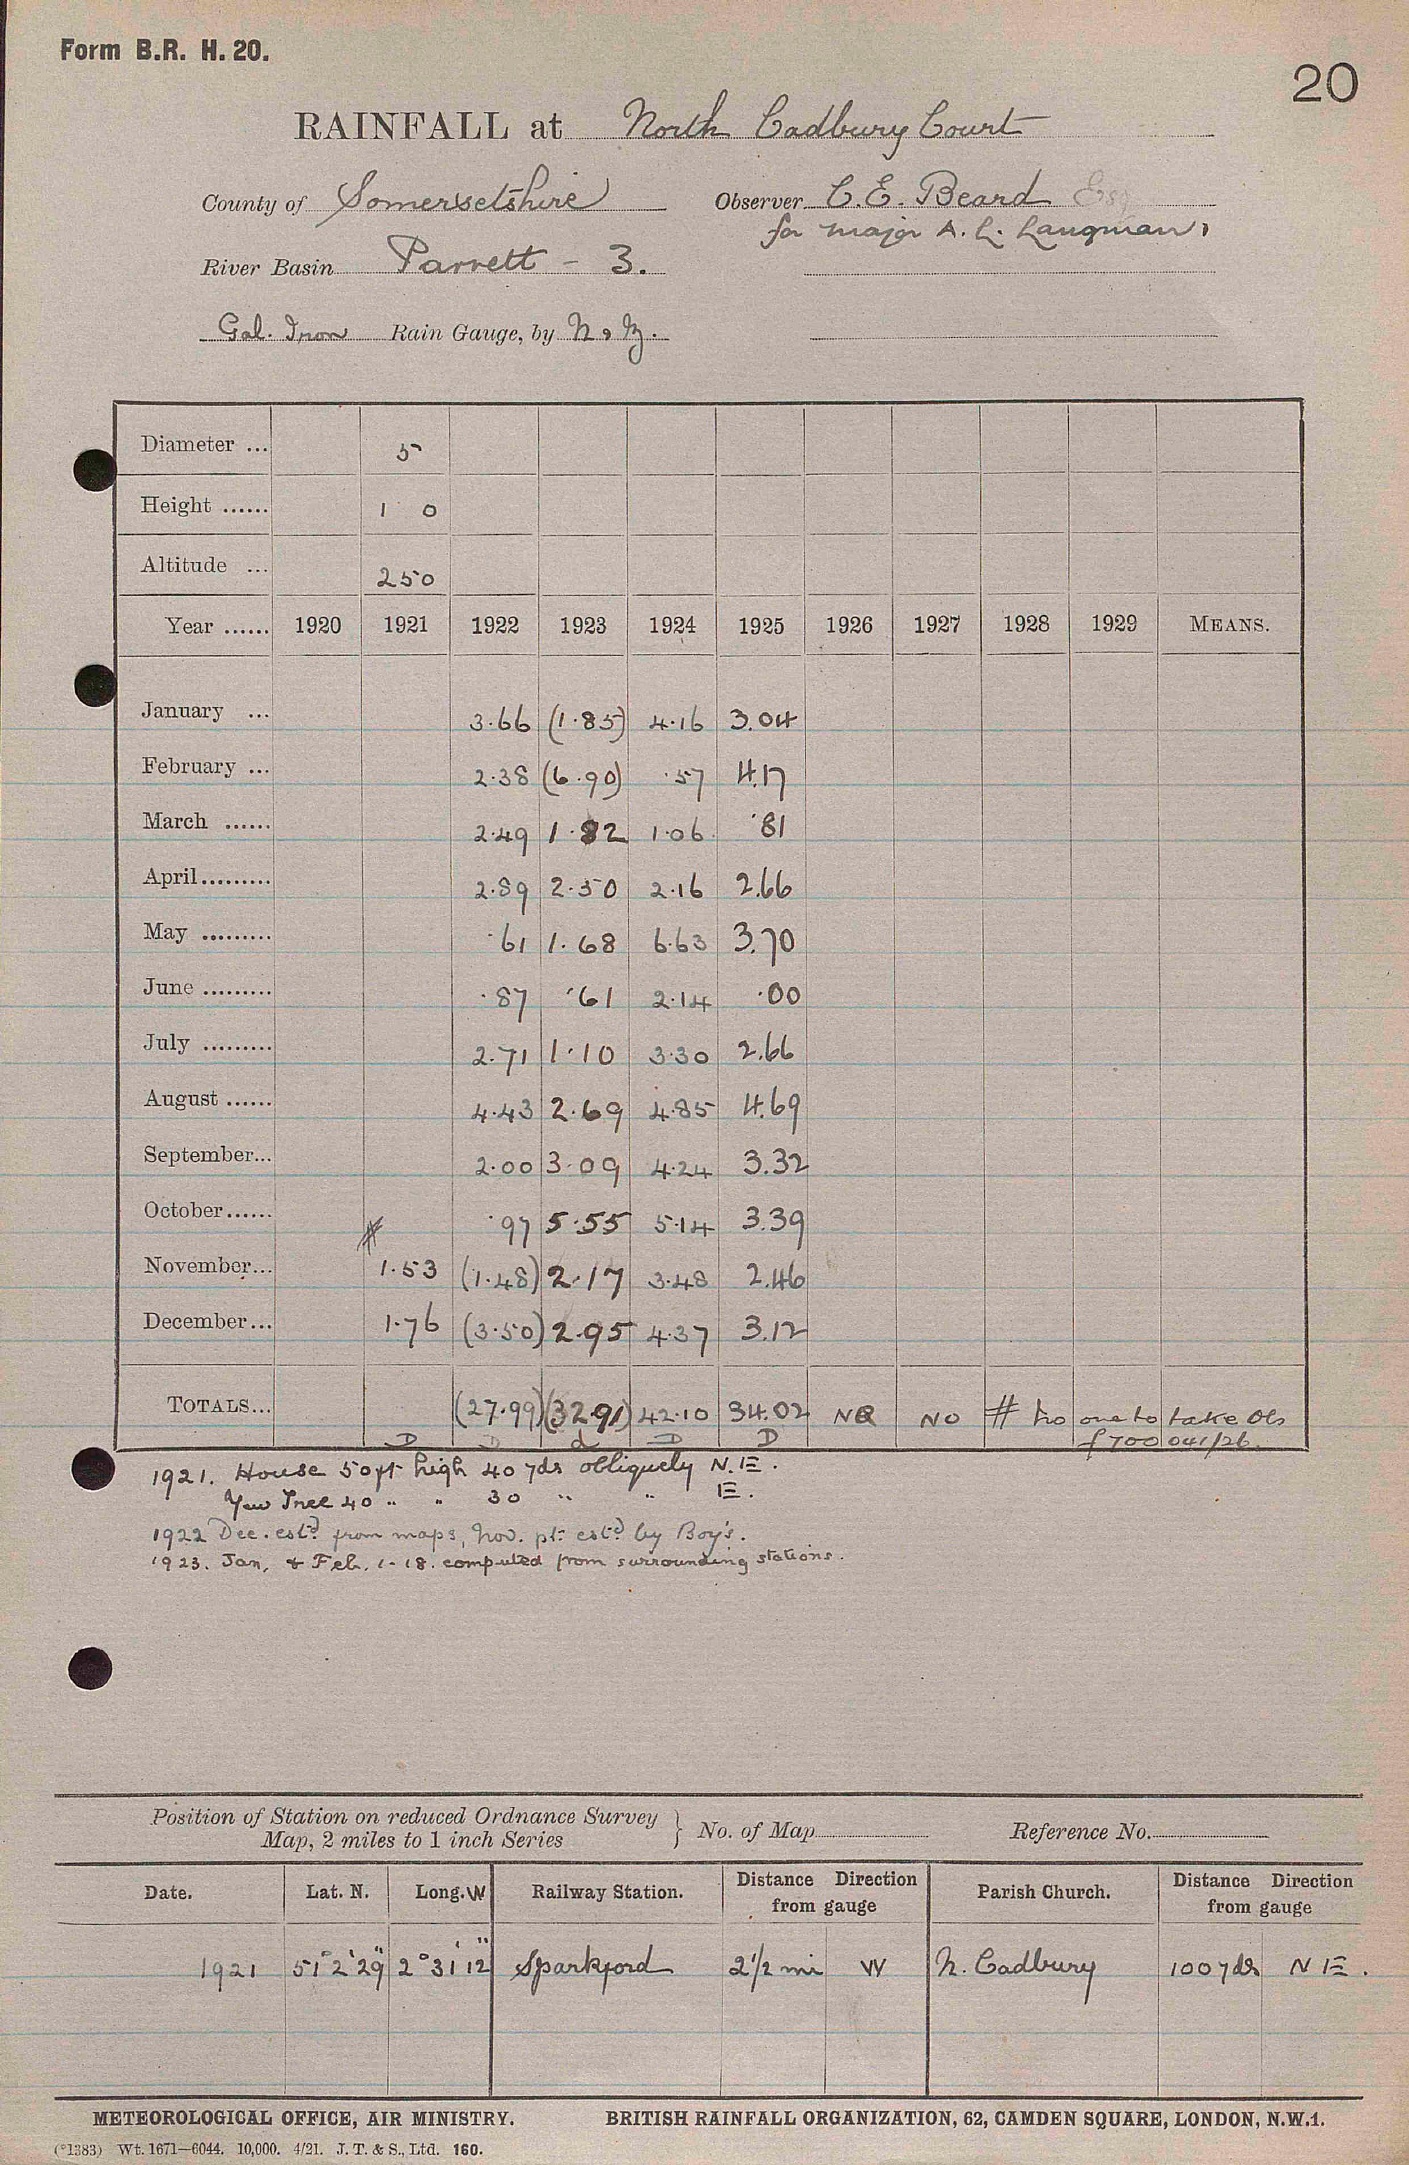 Form B.R. H. 20.
20
RAINFALL at North Cadbury Court
County of Somersetshire Observer C. E. Beard Esq
for Major A. L. Langman,
River Basin Parrett - 3.
Gal. Iron Rain Gauge, by N & Z.
Diameter ... 5
Height ...... 1 0
Altitude ... 250
Year ...... 1920 1921 1922 1923 1924 1925 1926 1927 1928 1929 MEANS.
January ... 3.66 (1.85) 4.16 3.04
February ... 2.38 (6.90) .57 4.17
March ...... 2.49 1.82 1.06 .81
April......... 2.89 2.50 2.16 2.66
May ......... .61 1.68 6.63 3.70
June ......... .87 .61 2.14 .00
July ......... 2.71 1.10 3.30 2.66
August ...... 4.43 2.69 4.85 4.69
September... 2.00 3.09 4.24 3.32
October...... .97 5.55 5.14 3.39
November... # 1.53 (1.48) 2.17 3.48 2.46
December... 1.76 (3.50) 2.95 4.37 3.12
TOTALS... (27.99) (32.91) 42.10 34.02 NO NO # no one to take Obs
D D d D D f 700 041/26.
1921. House 50ft high 40 yds obliquely N.E.
Yew Tree 40 " " 30 " " E.
1922 Dec. estd. from maps, Nov. pt. estd. by Boy's.
1923. Jan, & Feb. 1-18. computed from surrounding stations.
Position of Station on reduced Ordnance Survey
Map, 2 miles to 1 inch Series } No. of Map Reference No.
Date. Lat. N. Long. W Railway Station. Distance Direction from gauge Parish Church. Distance Direction from gauge
1921 51° 2' 29" 2° 31' 12" Sparkford 2½ mi W N. Cadbury 100 yds N E.
METEOROLOGICAL OFFICE, AIR MINISTRY. BRITISH RAINFALL ORGANIZATION, 62, CAMDEN SQUARE, LONDON, N.W.1.
(*1383) Wt. 1671—6044. 10,000. 4/21. J. T. & S., Ltd. 160.